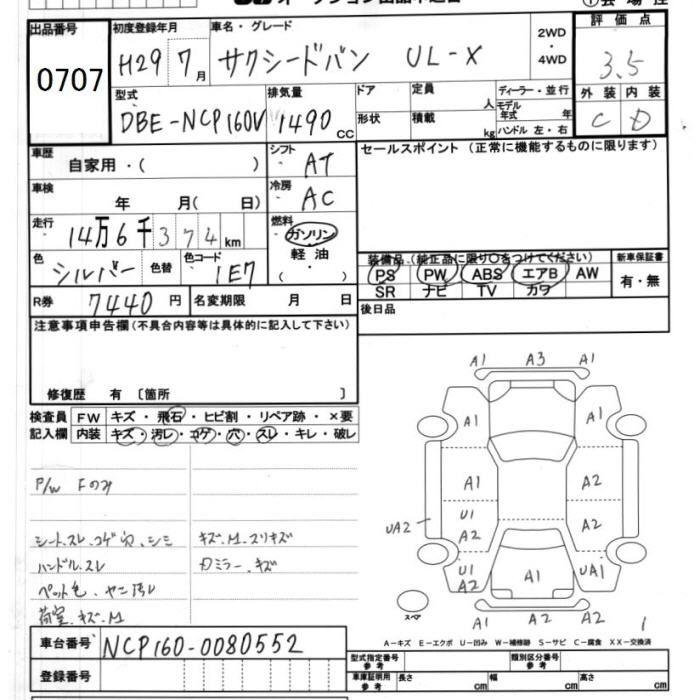 出品番号
0707
初度登録年月
H29 7月
車名・グレード
サクシードバン UL-X
2WD
・
4WD
評価点
3.5
外装 内装
C D
型式
DBE-NCP160V
排気量
1490 CC
ドア
定員 人
形状
積載 kg
ディーラー・並行
モデル年式 年
ハンドル 左・右
車歴
自家用・( )
シフト
AT
セールスポイント(正常に機能するものに限ります)
車検
年 月( 日)
冷房
AC
走行
14万6千374km
燃料
ガソリン
軽油
( )
色
シルバー
色替
色コード
1E7
装備品(純正品に限り○をつけてください)
PS PW ABS エアB AW
SR ナビ TV カワ
新車保証書
有・無
R券 7440 円
名変期限 月 日
後日品
注意事項申告欄(不具合内容等は具体的に記入して下さい)
修復歴 有 〔箇所 〕
検査員 FW キズ・飛石・ヒビ割・リペア跡・×要
記入欄 内装 キズ・汚レ・コゲ・穴・スレ・キレ・破レ
P/W Fのみ
シートスレ.コゲ穴.シミ
ハンドル.スレ
ペット色.ヤニ汚レ
荷室.キズ.凹
キズ.凹.スリキズ
カミラー.キズ
A1 A3 A1
A1 A1
A1 A2
UA2
U1 A2
A2
U1 A2
UA1
A1
スペア
A2 A2 A2
1
A-キズ E-エクボ U-凹み W-補修跡 S-サビ C-腐食 XX-交換済
車台番号 NCP160-0080552
登録番号
型式指定番号 参考
類別区分番号 参考
車庫証明用 参考
長さ cm 幅 cm 高さ cm